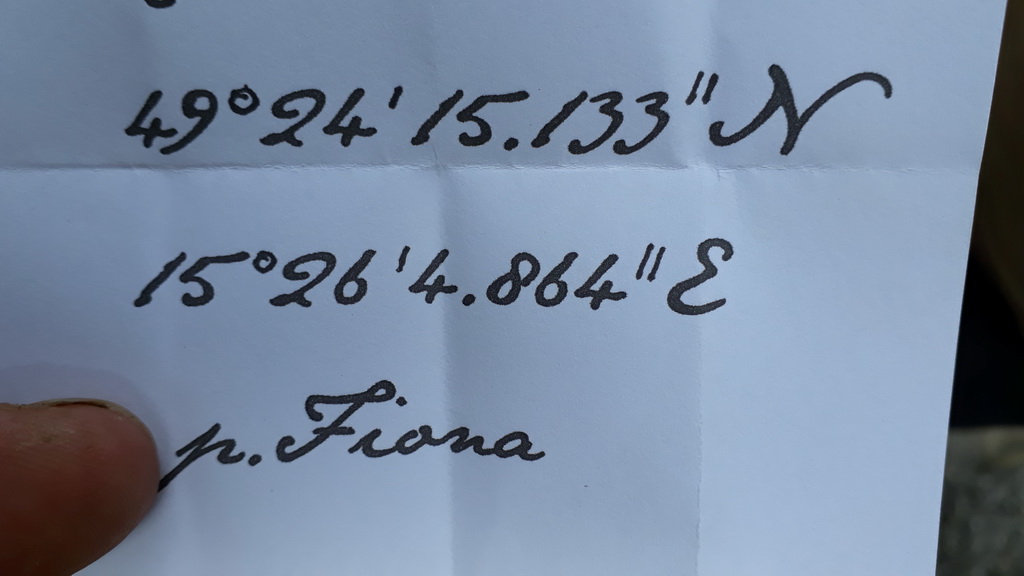 49°24'15.133"N
15°26'4.864"E
p.Fiona